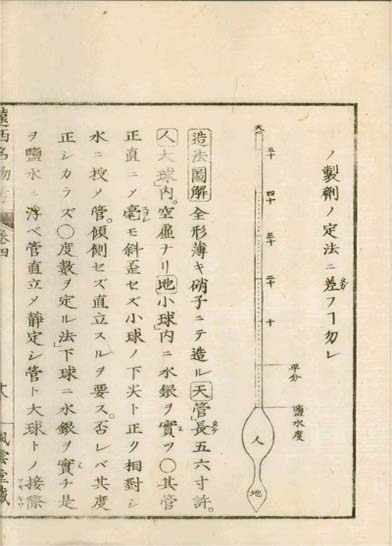 ノ製劑ノ定法ニ差フヿ勿レ
天
五十
四十
三十
二十
十
平分
鹽水度
人
地
造法圖解 全形薄キ硝子ニテ造ル天管長五六寸許。
人大球内。空虚ナリ地小球内ニ水銀ヲ實ツ〇其管
正直ニ〆毫モ斜歪セズ小球ノ下尖ト正ク相對シ
水ニ投〆管。傾側セズ直立スルヲ要ス。否レバ其度
正シカラズ〇度數ヲ定ル法下球ニ水銀ヲ實チ是
ヲ鹽水ニ浮ベ管直立〆靜定シ管ト大球トノ接際
卷四